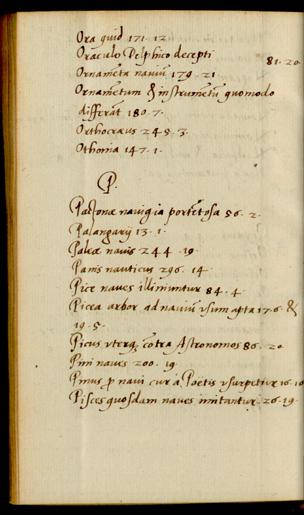 Ora quid 171. 12.
Oraculo Delphico decepti 81. 20.
Ornameta naviu 179. 21
Ornamentum & instrumetu quomodo
differat 180. 7.
Orthocraus 245. 3.
Othonia 147. 1.
P.
navigia portetosa 56. 2.
Palangarij 13. 1.
navis 244. 19.
Panis nauticus 296. 14
Pice naves illiniuntur 84. 4.
Picea arbor ad naviu usum apta 17. 6. &
19. 5.
Picus uterq; cotra Astronomos 86. 20.
Pini naves 200. 19.
Pinus p navi cur a Poëtis usurpetur 16. 10
Pisces quosdam naves imitantur 26. 19.